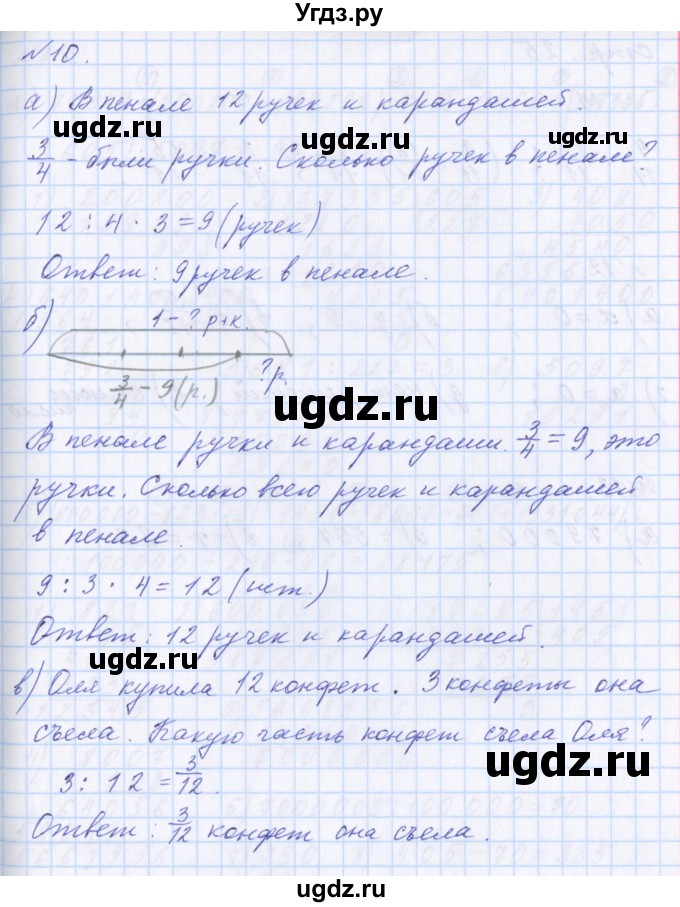 Угдз.ру
№10.
а) В пенале 12 ручек и карандашей.
ugdz.ru ugdz.ru ugdz.ru
3/4 - были ручки. Сколько ручек в пенале?
12 : 4 · 3 = 9 (ручек)
Ответ: 9 ручек в пенале.
б) 1 - ? р+к.
3/4 - 9 (р.) ?р.
ugdz.ru
В пенале ручки и карандаши. 3/4 = 9, это
ручки. Сколько всего ручек и карандашей
в пенале.
9 : 3 · 4 = 12 (шт.)
Ответ: 12 ручек и карандашей.
ugdz.ru ugdz.ru
в) Оля купила 12 конфет. 3 конфеты она
съела. Какую часть конфет съела Оля?
ugdz.ru
3 : 12 = 3/12.
Ответ: 3/12 конфет она съела.
ugdz.ru